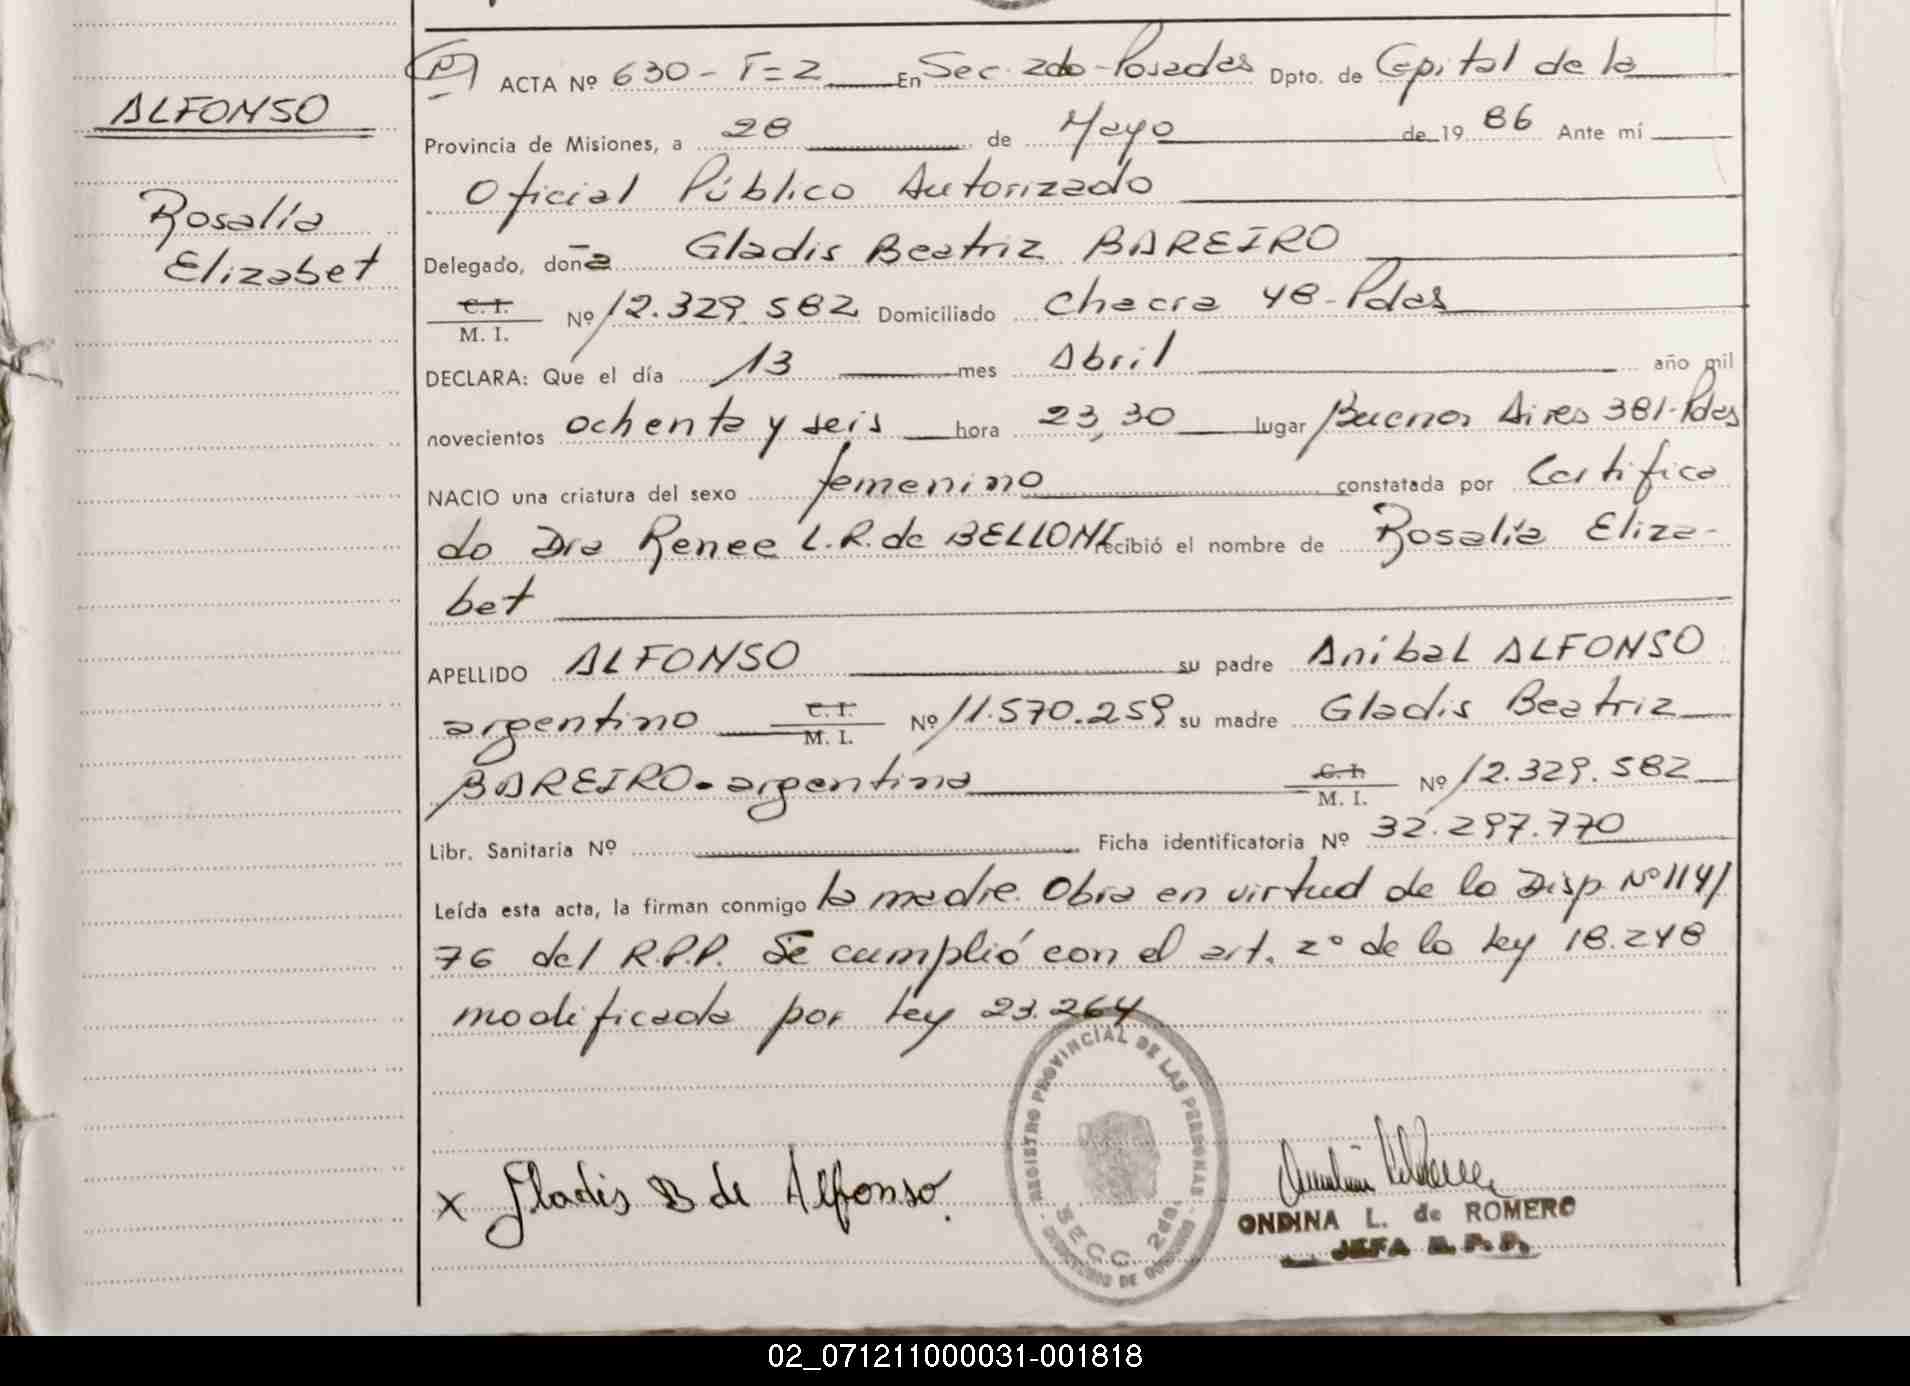 ALFONSO
Rosalía
Elizabet
ACTA Nº 630 - T=2 En Sec. 2do - Posadas Dpto. de Capital de la
Provincia de Misiones, a 28 de Mayo de 1986 Ante mí
Oficial Público Autorizado
Delegado, doña Gladis Beatriz BAREIRO
C. I.
M. I. Nº 12.329.582 Domiciliado Chacra 48 - Pdas
DECLARA: Que el día 13 mes Abril año mil
novecientos ochenta y seis hora 23,30 lugar Buenos Aires 381-Pdas
NACIO una criatura del sexo femenino constatada por Certifica
do Dra Renee L.R. de BELLONI recibió el nombre de Rosalía Eliza-
bet
APELLIDO ALFONSO su padre Anibal ALFONSO
argentino C. I. M. I. Nº 11.570.259 su madre Gladis Beatriz
BAREIRO - argentina C. I. M. I. Nº 12.329.582
Libr. Sanitaria Nº Ficha identificatoria Nº 32.297.770
Leída esta acta, la firman conmigo la madre. Obra en virtud de la Disp. Nº 114/
76 del R.P.P. Se cumplió con el art. 2º de la Ley 18.248
modificada por Ley 23.264
REGISTRO PROVINCIAL DE LAS PERSONAS
SECC. 2da.
x Gladis B de Alfonso.
ONDINA L. de ROMERO
JEFA R. P. P.
02_071211000031-001818